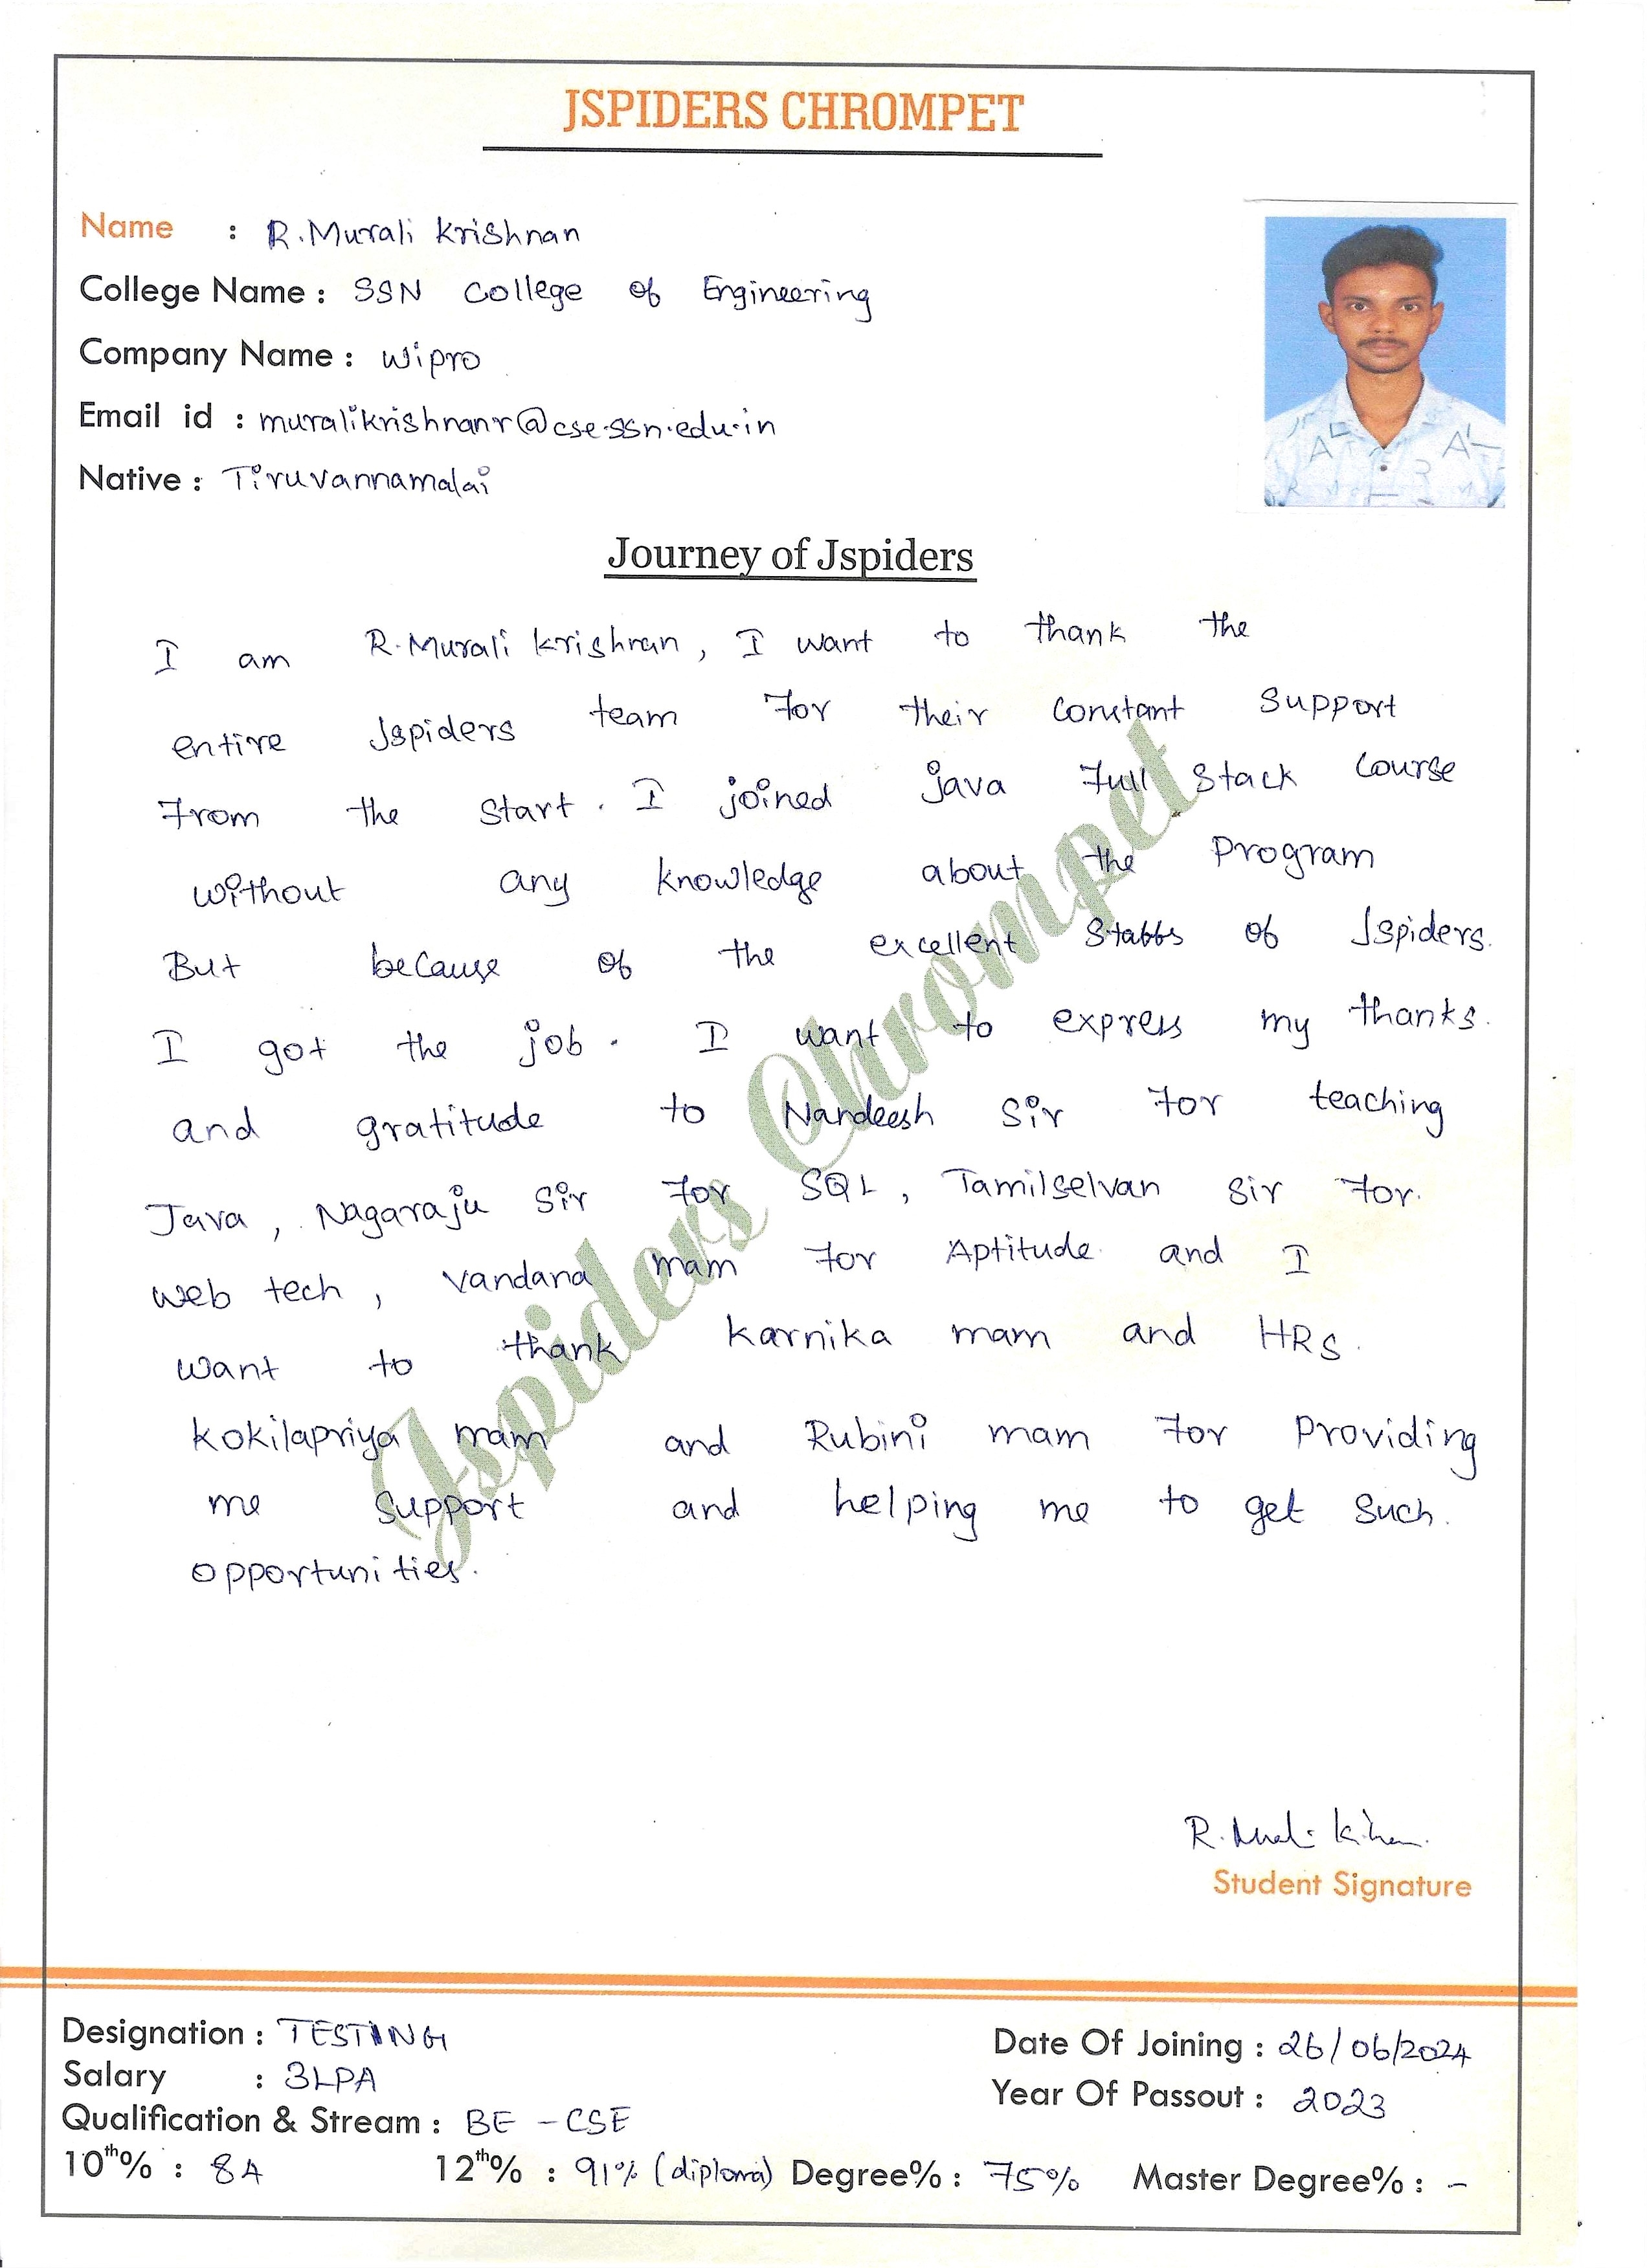 JSPIDERS CHROMPET
Name : R.Murali Krishnan
College Name : SSN College of Engineering
Company Name : Wipro
Email id : muralikrishnanr@cse.ssn.edu.in
Native : Tiruvannamalai
Journey of Jspiders
I am R.Murali Krishnan, I want to thank the
entire Jspiders team for their constant support
from the start. I joined java full stack course
without any knowledge about the program
But because of the excellent staffs of Jspiders.
I got the job. I want to express my thanks.
and gratitude to Nandeesh sir for teaching
Java, Nagaraju sir for SQL, Tamilselvan sir for.
web tech, vandana mam for Aptitude and I
want to thank karnika mam and HRs.
kokilapriya mam and Rubini mam for providing
me support and helping me to get such.
opportunities.
Jspiders Chrompet
Student Signature
Designation : TESTING
Date Of Joining : 26/06/2024
Salary : 3LPA
Year Of Passout : 2023
Qualification & Stream : BE - CSE
10th% : 84 12th% : 91% (diploma) Degree% : 75% Master Degree% : -